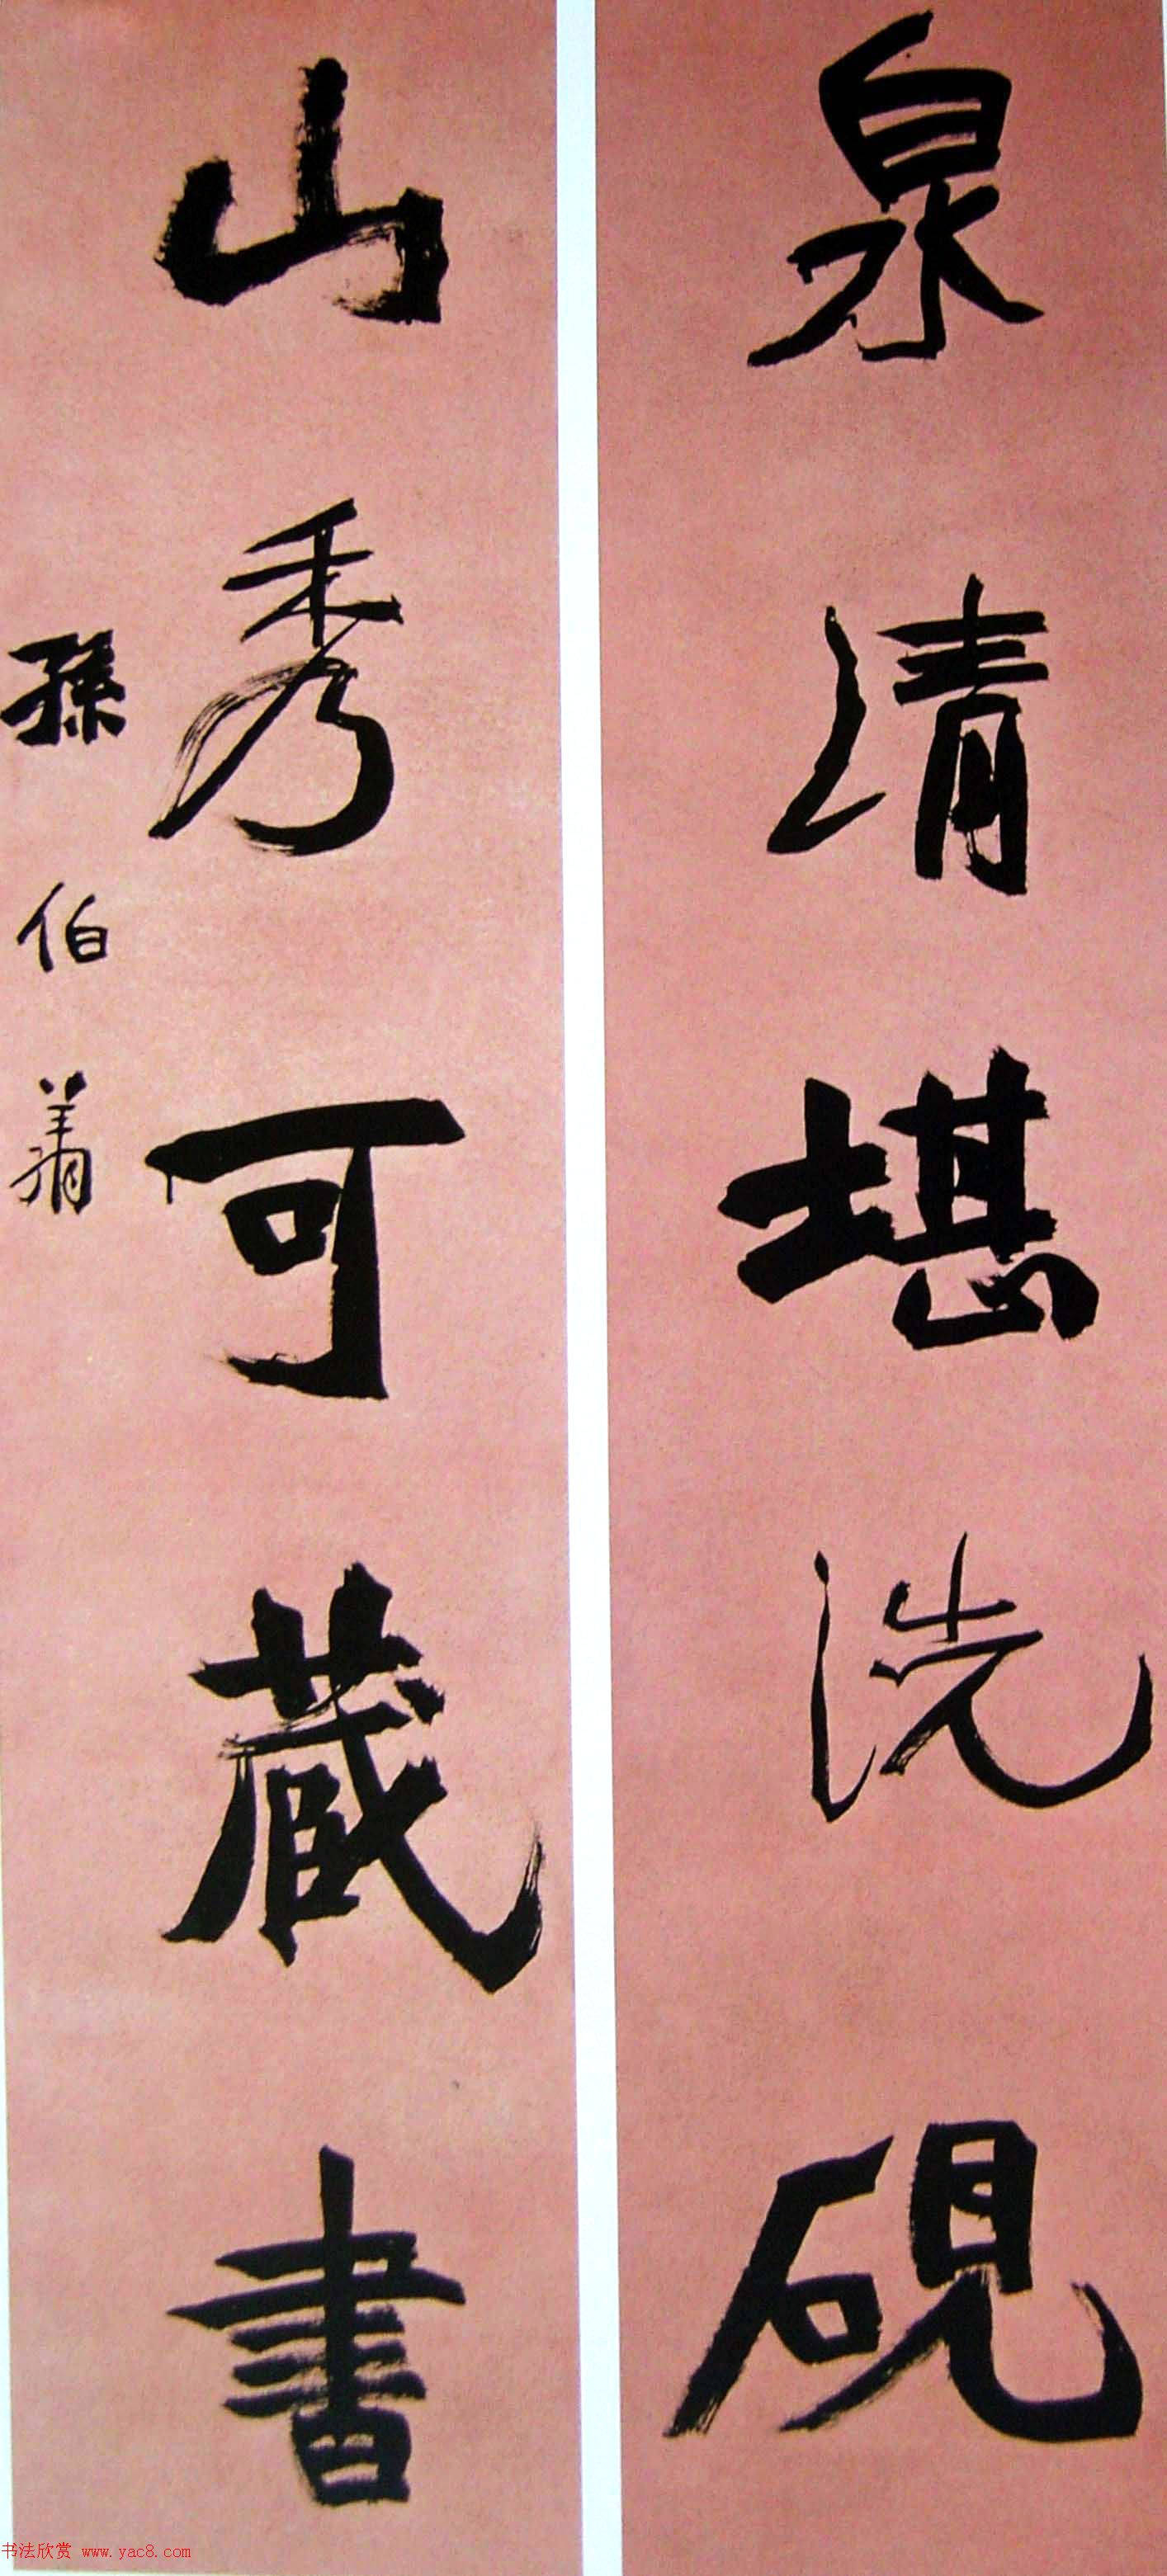 泉清堪洗硯
山秀可藏書
孫伯翔
书法欣赏 www.yac8.com